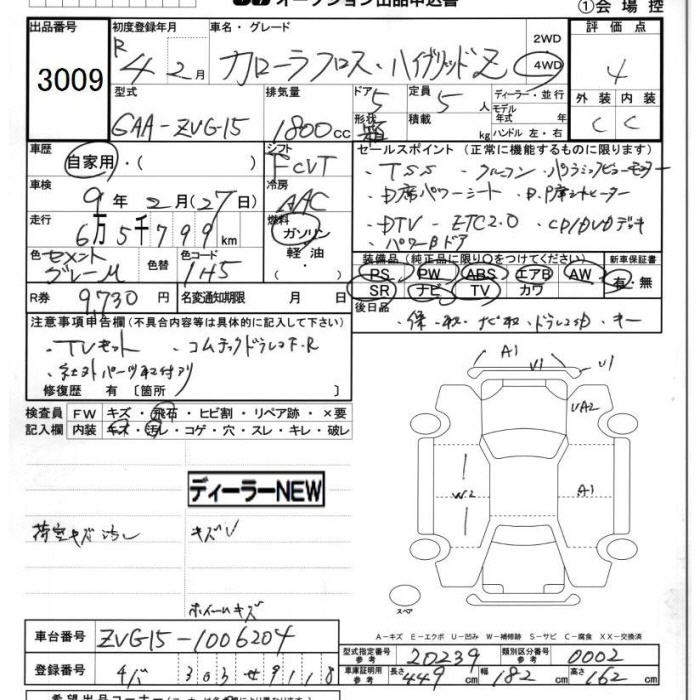 オークション出品申込書 ①会場控
出品番号 初度登録年月 車名・グレード 2WD 評価点
3009 R4 2月 カローラクロス・ハイブリッドZ 4WD 4
型式 排気量 ドア 定員 ディーラー・並行 外装 内装
6AA-ZVG15 1800cc 5 形状 5人 積載 kg モデル年式 年 ハンドル 左・右 C C
車歴 シフト セールスポイント(正常に機能するものに限ります)
自家用・( ) FCVT ・TSS ・クルコン ・パノラミックビューモニター
車検 冷房 ・D席パワーシート ・D.P席シートヒーター
9年2月(27日) AAC ・DTV ・ETC2.0 ・CD/DVDデッキ
走行 燃料 ・パワーBドア
6万5千799km ガソリン 軽油
装備品(純正品に限り○をつけてください) 新車保証書
色 セメントグレーM 色替 色コード 1H5 PS PW ABS エアB AW 有・無
R券 9,730円 名変通知期限 月 日 SR ナビ TV カワ
後日品
注意事項申告欄(不具合内容等は具体的に記入して下さい) ・保・取・ナビ取・ドラレコ取・キー
・TVキット ・コムテックドラレコF.R
・社外パーツ取付有り
修復歴 有〔箇所 〕
A1 U1 U1
検査員 FW キズ・飛石・ヒビ割・リペア跡・×要
UA2
記入欄 内装 キズ・汚レ・コゲ・穴・スレ・キレ・破レ
ディーラーNEW
W2 A1
荷室キズ汚レ キズV
ホイールキズ
スペア
A-キズ E-エクボ U-凹み W-補修跡 S-サビ C-腐食 XX-交換済
車台番号 ZVG15-1006204
型式指定番号 参考 20239 類別区分番号 参考 0002
登録番号 303せ9118
車庫証明用 参考 長さ 449cm 幅 182cm 高さ 162cm
希望出品コーナー